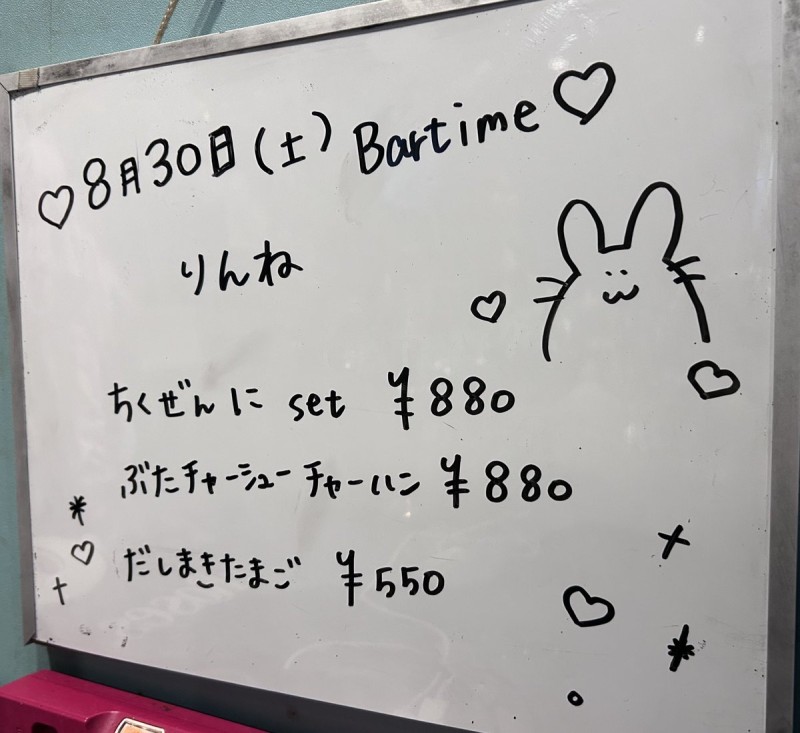 ♡8月30日(土) Bartime♡
りんね
ちくぜんに set ¥880
ぶたチャーシューチャーハン ¥880
だしまきたまご ¥550